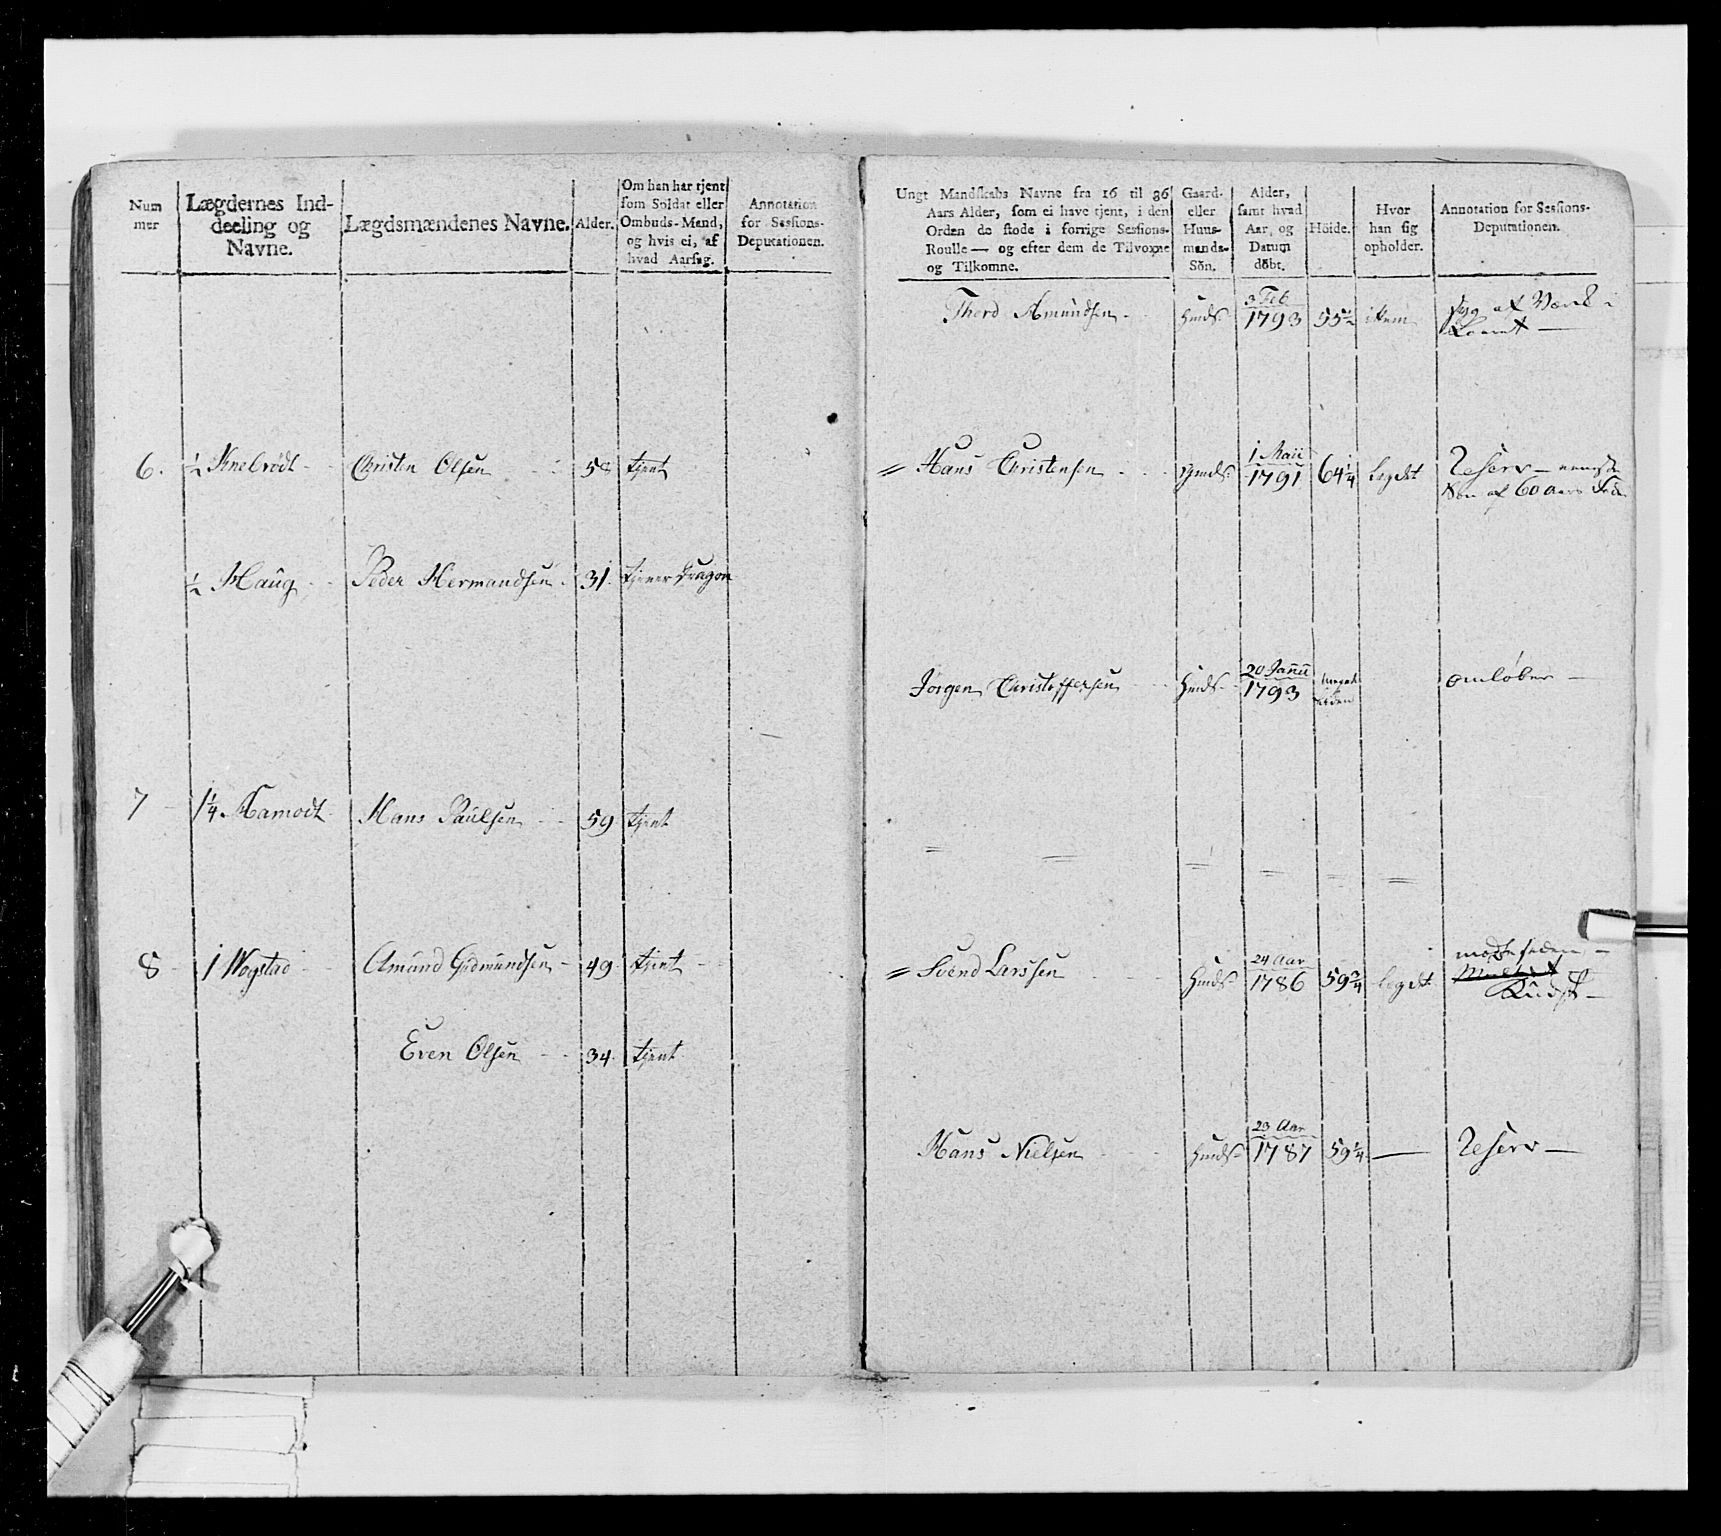 Num
mer
Lægdernes Ind-
deeling og
Navne.
Lægdsmændenes Navne.
Alder.
Om han har tjent
som Soldat eller
Ombuds-Mand,
og hvis ei, af
hvad Aarsag.
Annotation
for Sessions-
Deputationen.
6. ½ Knelrödt Christen Olsen 58 tjent
½ Haug Peder Hermandsen 31. tjener Dragon
7 1¼ Hamodt Hans Paulsen 59 tjent
8 1 Wogstad Amund Gudmundsen 49 tjent
Even Olsen 34. tjent
Ungt Mandskabs Navne fra 16 til 36
Aars Alder, som ei have tjent, i den
Orden de stode i forrige Sessions-
Roulle — og efter dem de Tilvoxne
og Tilkomne.
Gaard-
eller
Huus-
mands-
Sön.
Alder,
samt hvad
Aar, og
Datum
döbt.
Höide.
Hvor
han sig
opholder.
Annotation for Sessions-
Deputationen.
3 Feb
Thord Amundsen Huuds. 1793 55½ item syg af Værk i
1 Maii
= Hans Christensen Gmds. 1791 64¼ legdet Reserv — eeneste
Sön af 60 aars Fader
20 Januii
Jörgen Christoffersen Huuds. 1793 omlöber —
24 Aar
= Svend Larssen Huuds. 1786 59¾ legdet möde siden —
Kudsk —
23 Aar
Hans Nielsen Huuds. 1787 59¼ — Reserv —